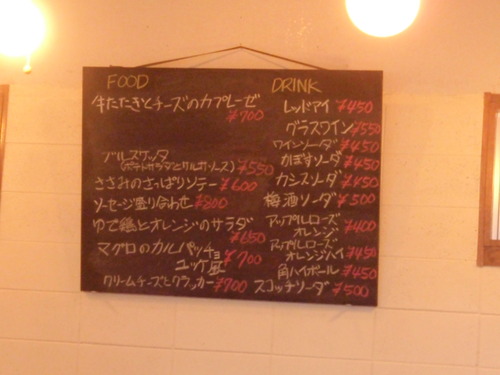 FOOD
牛たたきとチーズのカプレーゼ
¥700
ブルスケッタ
(ポテトサラダとサルサソース) ¥550
ささみのさっぱりソテー ¥600
ソーセージ盛り合わせ ¥800
ゆで鶏とオレンジのサラダ
¥650
マグロのカルパッチョ
ユッケ風 ¥700
クリームチーズとクラッカー ¥700
DRINK
レッドアイ ¥450
グラスワイン ¥550
ワインソーダ ¥450
かぼすソーダ ¥450
カシスソーダ ¥450
梅酒ソーダ ¥500
アップルローズ
オレンジ ¥400
アップルローズ
オレンジハイ ¥450
角ハイボール ¥450
スコッチソーダ ¥500